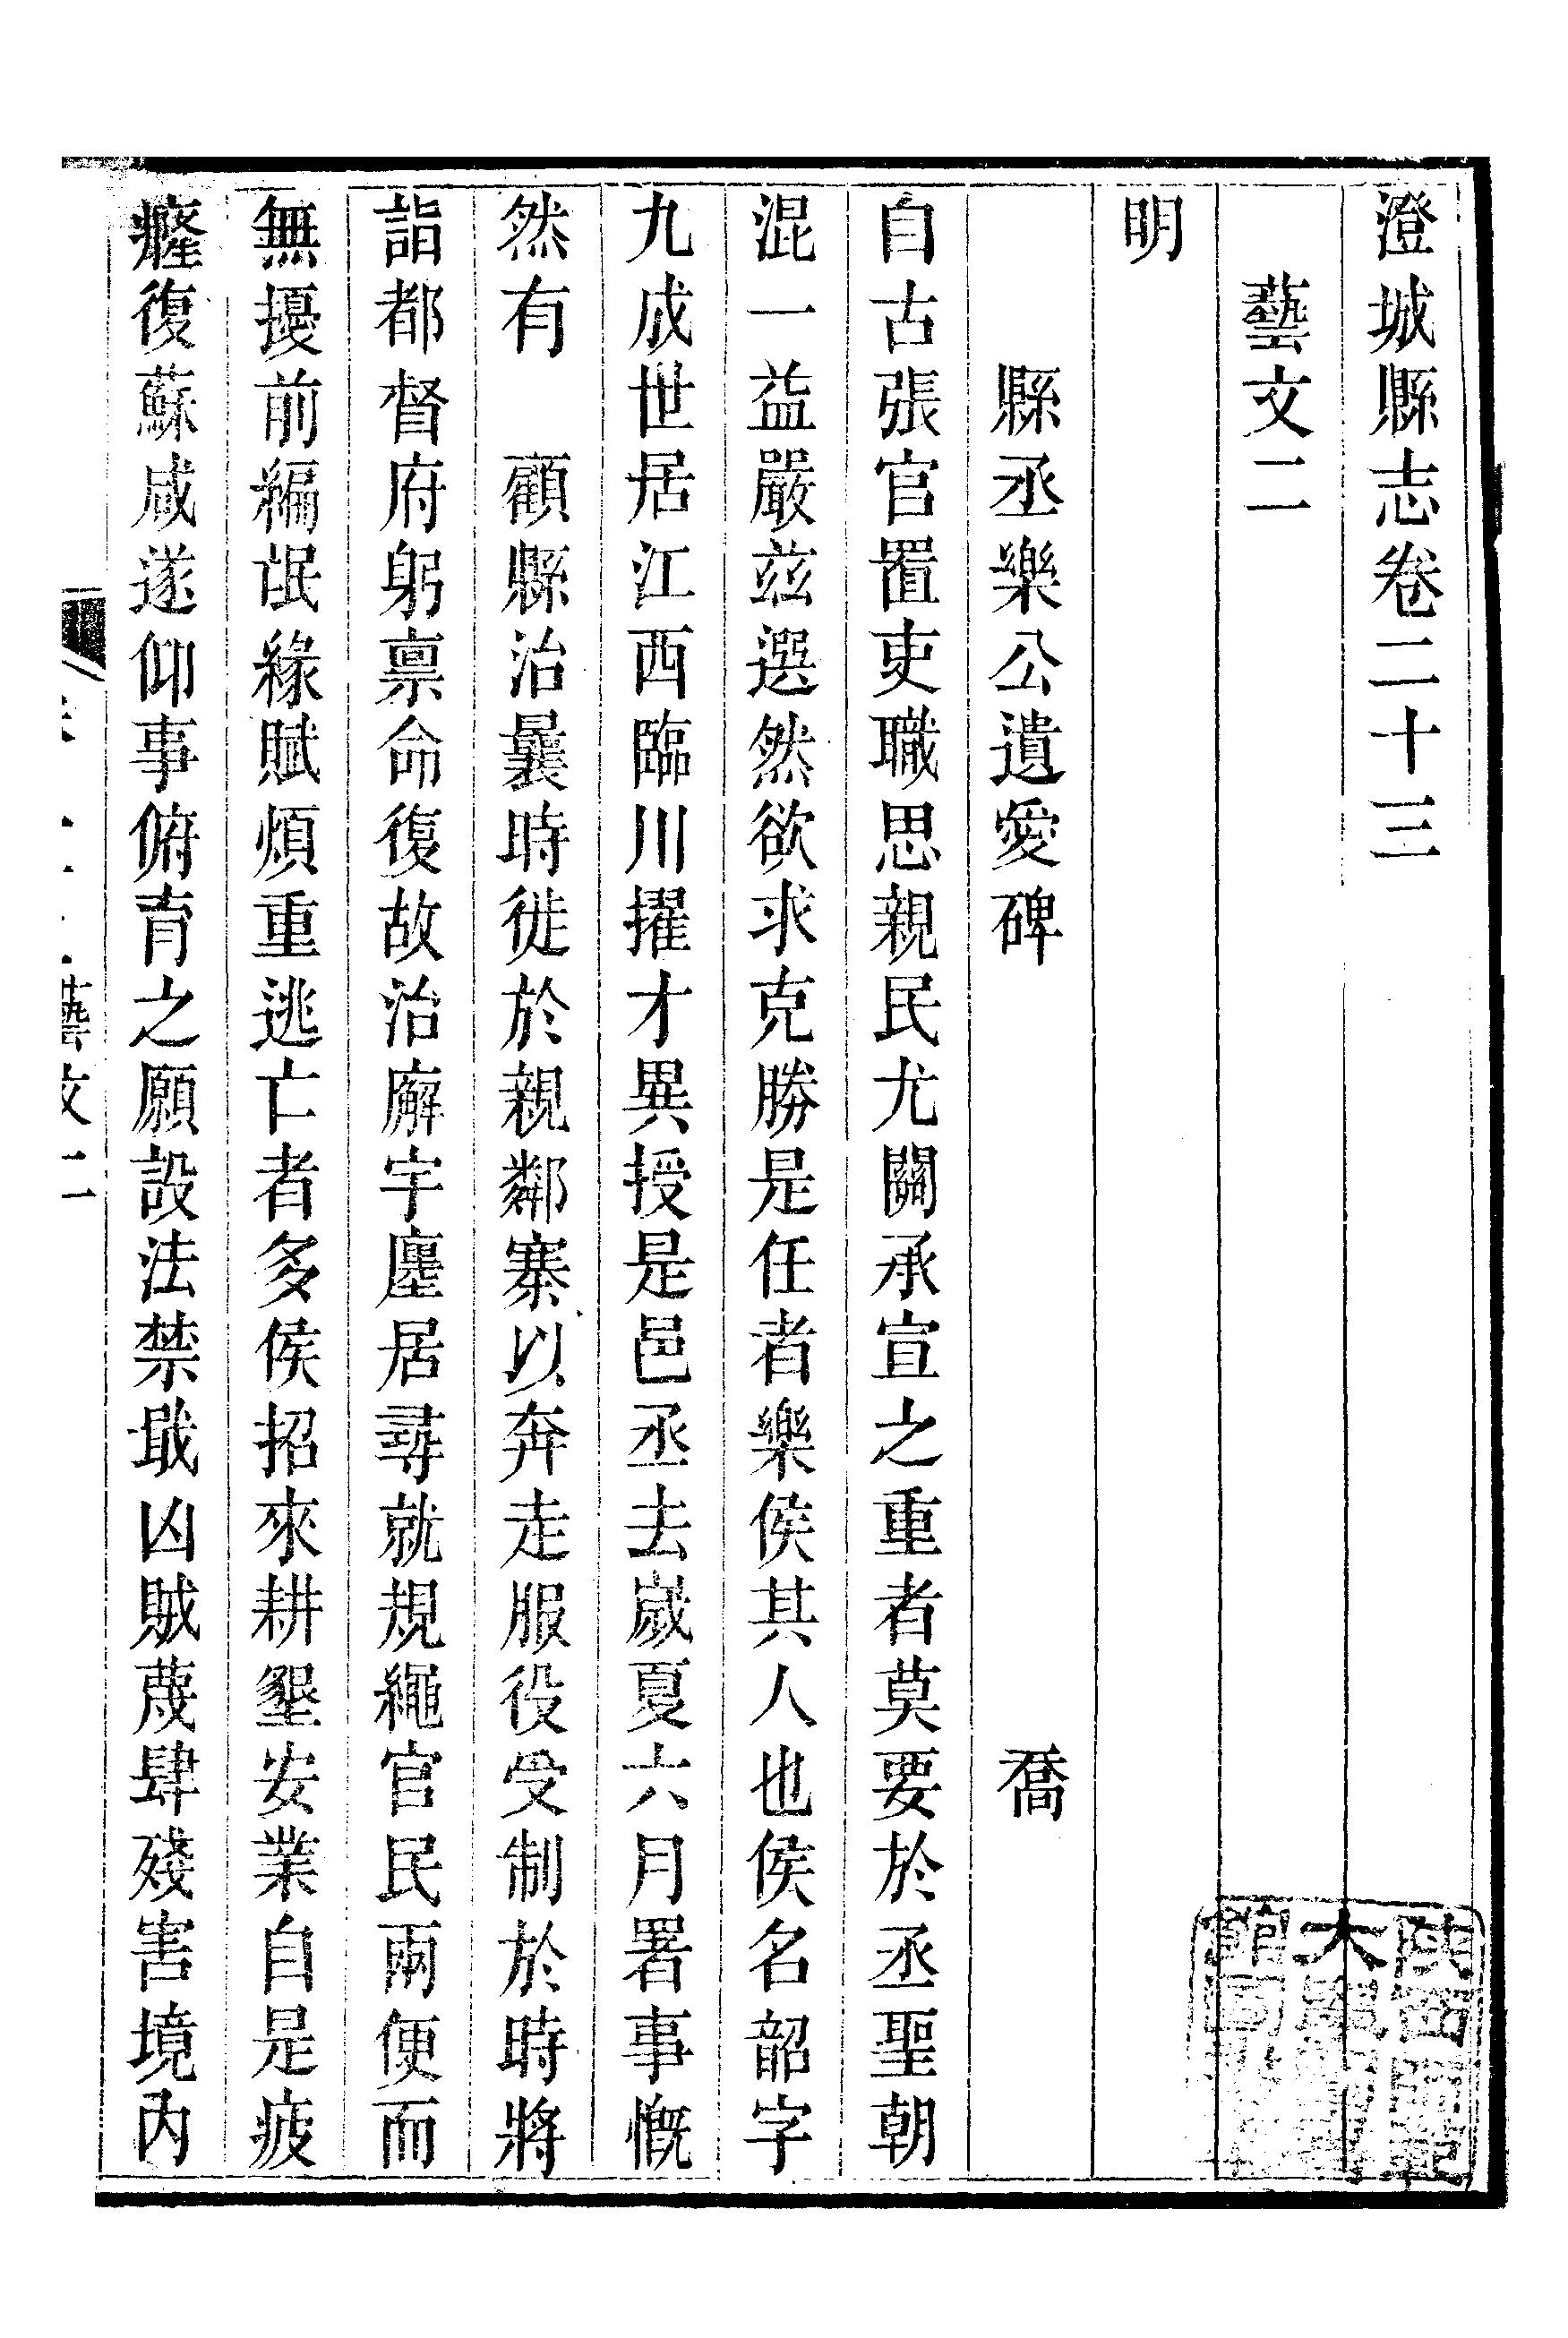 澄城縣志卷二十三
藝文二
明
縣丞樂公遺愛碑　喬
自古張官置吏職思親民尤關承宣之重者莫要於丞聖朝
混一益嚴茲選然欲求克勝是任者樂侯其人也侯名韶字
九成世居江西臨川擢才異授是邑丞去歲夏六月署事慨
然有　顧縣治曩時徙於親鄰寨以奔走服役受制於時將
詣都督府躬禀命復故治廨宇廛居尋就規繩官民兩便而
無擾前編氓緣賦煩重逃亡者多侯招來耕墾安業自是疲
癃復蘇咸遂仰事俯育之願設法禁戢凶賊蔑肆殘害境內
藝文二
陝西師範
大學圖書
館